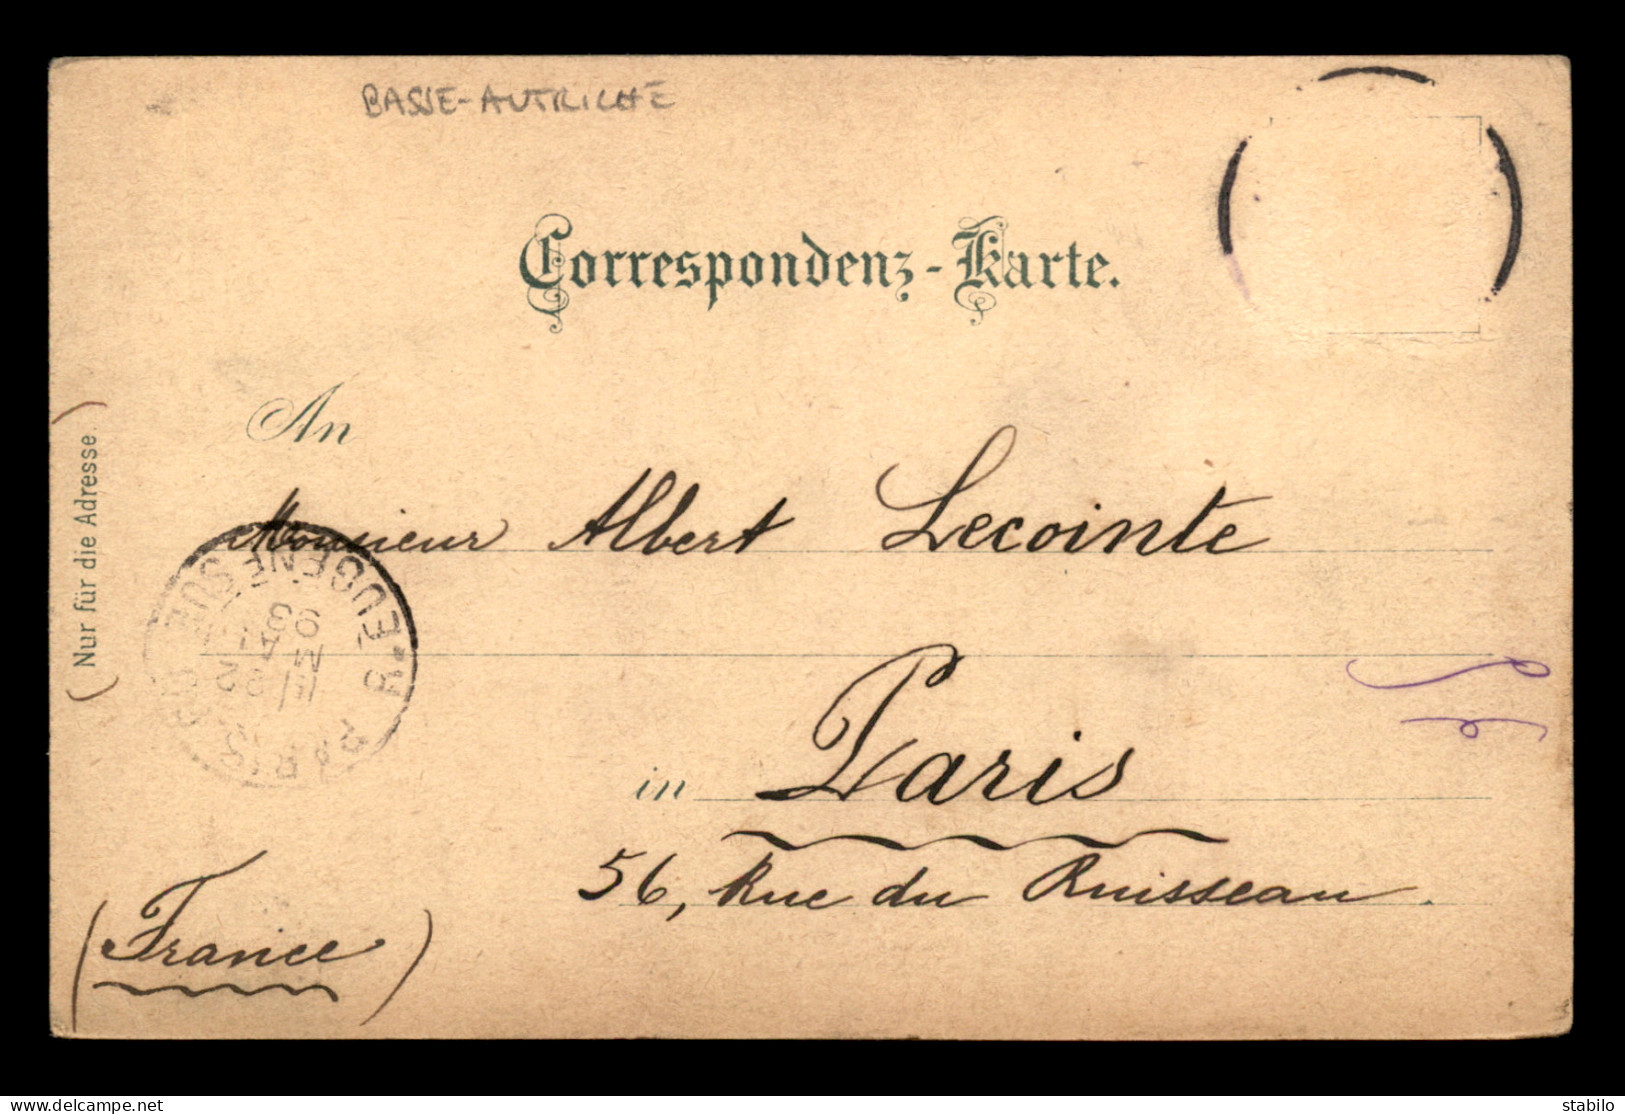 BASSE-AUTRICHE
Correspondenz-Karte.
An
(Nur für die Adresse.)
Monsieur Albert Lecointe
PARIS
R. EUGÈNE SUE
MAI
03
in Paris
56, Rue du Ruisseau.
(France)
www.delcampe.net
stabilo